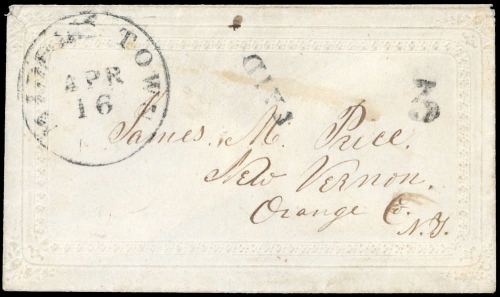 TOWN
APR
16
PAID
3
James. M. Price.
New Vernon.
Orange Co.
N.Y.